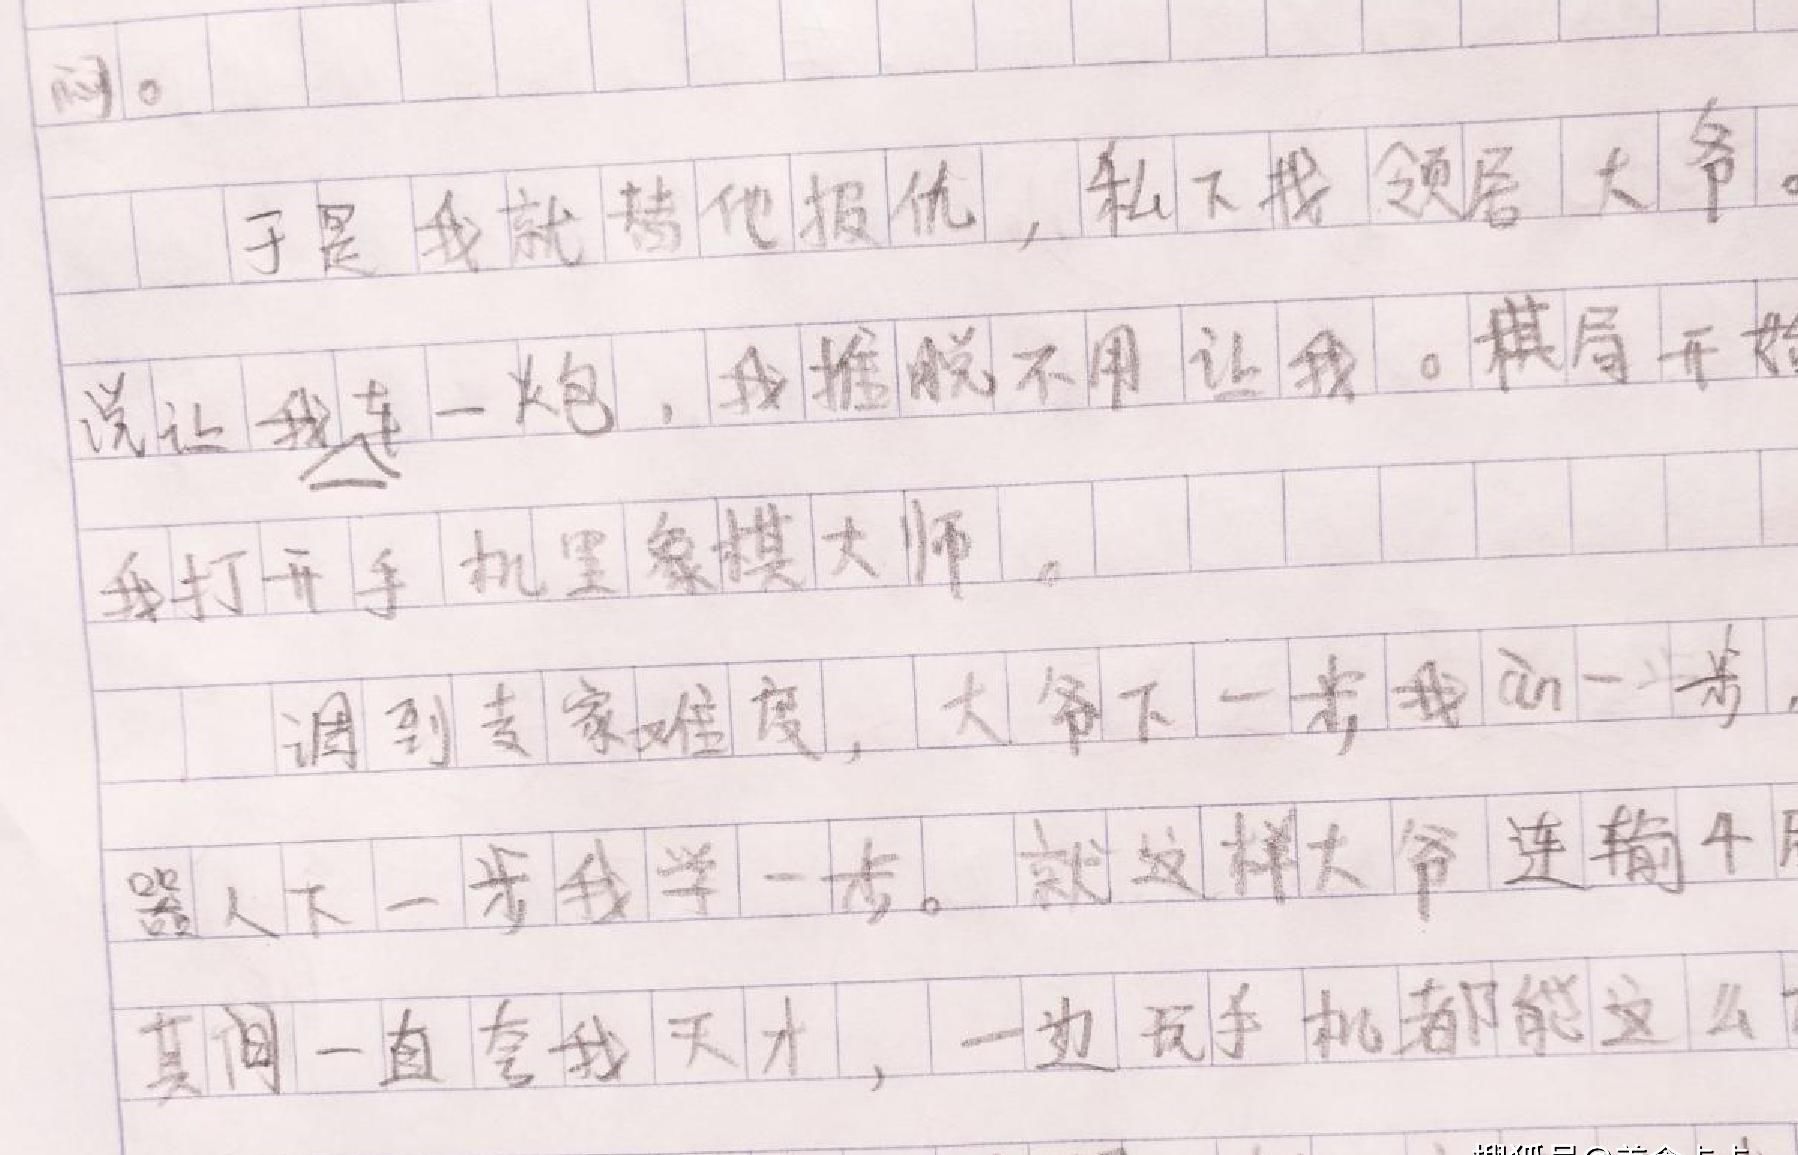 闷。
于是我就替他报仇，私下找领居大爷。
说让我车一炮，我推脱不用让我。棋局开始
我打开手机里象棋大师。
调到专家难度，大爷下一步我àn一步，
器人下一步我学一步。就这样大爷连输4局
其间一直夸我天才，一边玩手机都能这么